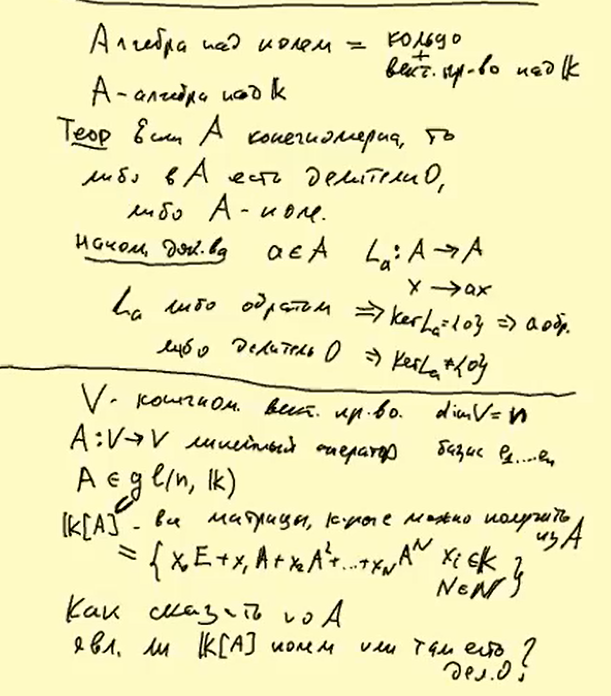 Алгебра над полем = кольцо
+
вект. пр-во над 𝕜
A - алгебра над 𝕜
Теор Если A конечномерна, то
либо в A есть делители 0,
либо A - поле.
Наком. док-ва a ∈ A L_a : A → A
x → ax
L_a либо обратим ⇒ ker L_a = {0} ⇒ a обр.
либо делитель 0 ⇒ ker L_a ≠ {0}
V - конечном. вект. пр-во. dim V = n
A : V → V линейный оператор базис e_1...e_n
A ∈ gl(n, 𝕜)
𝕜[A] - все матрицы, к-рые можно получить
из A
= { x_0 E + x_1 A + x_2 A^2 + ... + x_N A^N x_i ∈ 𝕜
N ∈ ℕ }
Как сказать по A
явл. ли 𝕜[A] полем или там есть
дел. 0 ?